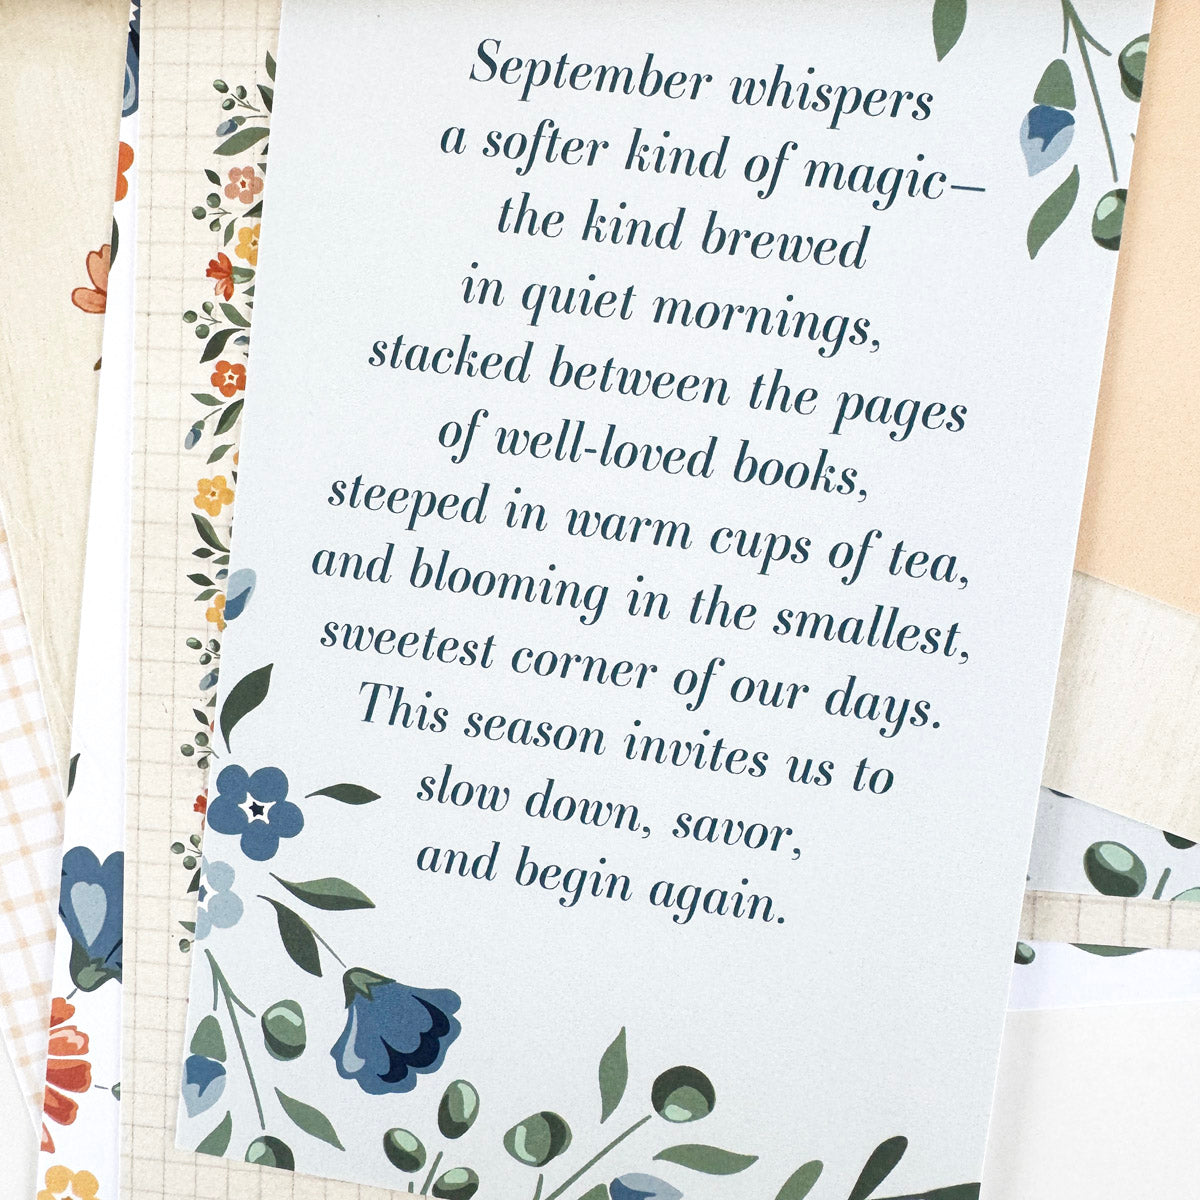 September whispers
a softer kind of magic—
the kind brewed
in quiet mornings,
stacked between the pages
of well-loved books,
steeped in warm cups of tea,
and blooming in the smallest,
sweetest corner of our days.
This season invites us to
slow down, savor,
and begin again.